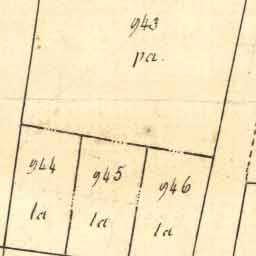 943
pa.
944
la
945
la
946
la